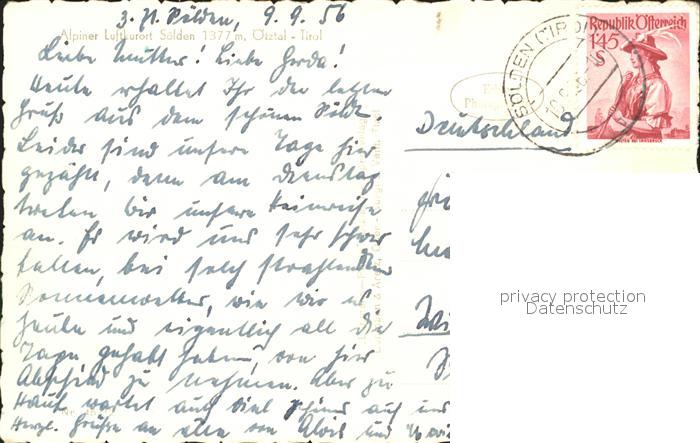 z. Zt. Sölden, 9. 9. 56
Alpiner Luftkurort Sölden 1377 m, Ötztal - Tirol
Liebe Mutter! Liebe Gerda!
Heute erhaltet Ihr den letzten
Gruß aus dem schönen Sölden.
Leider sind unsere Tage hier
gezählt, denn am Dienstag
treten wir unsere Heimreise
an. Es wird uns sehr schwer
fallen, bei solch strahlendem
Sonnenwetter, wie wir es
heute und eigentlich all die
Tage gehabt haben, von hier
Abschied zu nehmen. Aber zu
Haus wartet auch viel schönes auf uns
Herzl. Grüße an alle von Alois und
Republik Österreich
1'45
SÖLDEN (TIROL)
Deutschland
privacy protection
Datenschutz